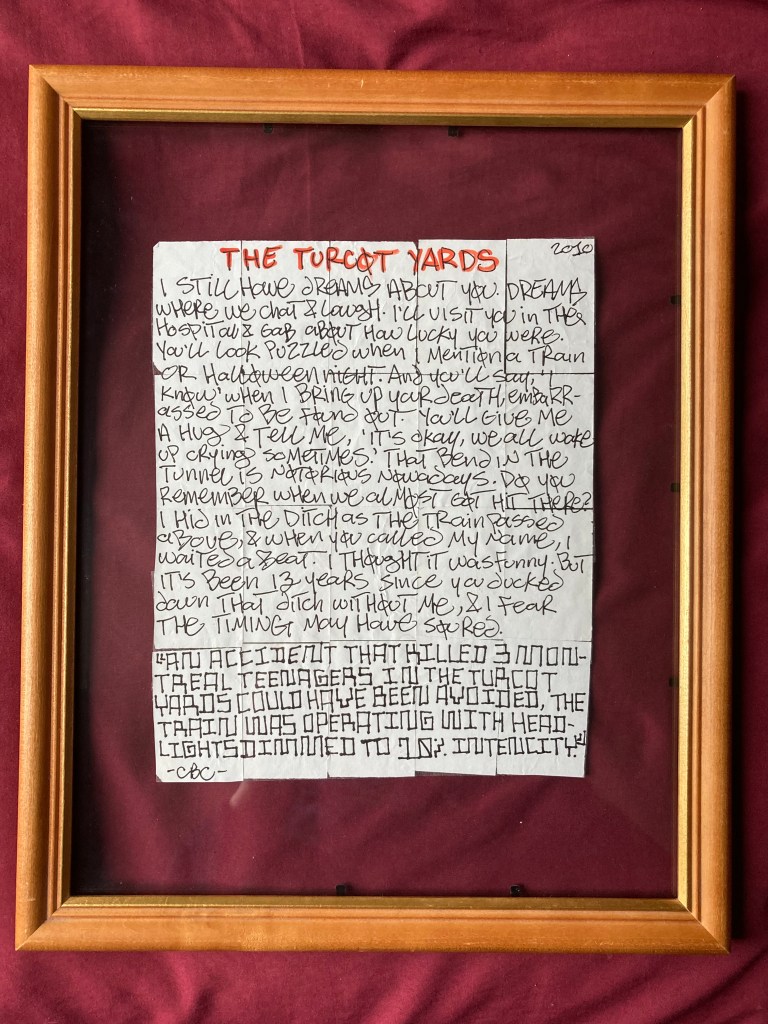 THE TURCOT YARDS
2010
I STILL HAVE DREAMS ABOUT YOU. DREAMS
WHERE WE CHAT & LAUGH. I'LL VISIT YOU IN THE
HOSPITAL & GAB ABOUT HOW LUCKY YOU WERE.
YOU'LL LOOK PUZZLED WHEN I MENTION A TRAIN
OR HALLOWEEN NIGHT. AND YOU'LL SAY, 'I
KNOW' WHEN I BRING UP YOUR DEATH, EMBARR-
ASSED TO BE FOUND OUT. YOU'LL GIVE ME
A HUG & TELL ME, 'IT'S OKAY, WE ALL WAKE
UP CRYING SOMETIMES.' THAT BEND IN THE
TUNNEL IS NOTORIOUS NOWADAYS. DO YOU
REMEMBER WHEN WE ALMOST GOT HIT THERE?
I HID IN THE DITCH AS THE TRAIN PASSED
ABOVE, & WHEN YOU CALLED MY NAME, I
WAITED A BEAT. I THOUGHT IT WAS FUNNY. BUT
IT'S BEEN 13 YEARS SINCE YOU DUCKED
DOWN THAT DITCH WITHOUT ME, & I FEAR
THE TIMING MAY HAVE SOURED.
"AN ACCIDENT THAT KILLED 3 MON-
TREAL TEENAGERS IN THE TURCOT
YARDS COULD HAVE BEEN AVOIDED, THE
TRAIN WAS OPERATING WITH HEAD-
LIGHTS DIMMED TO 20% INTENCITY."
-CBC-